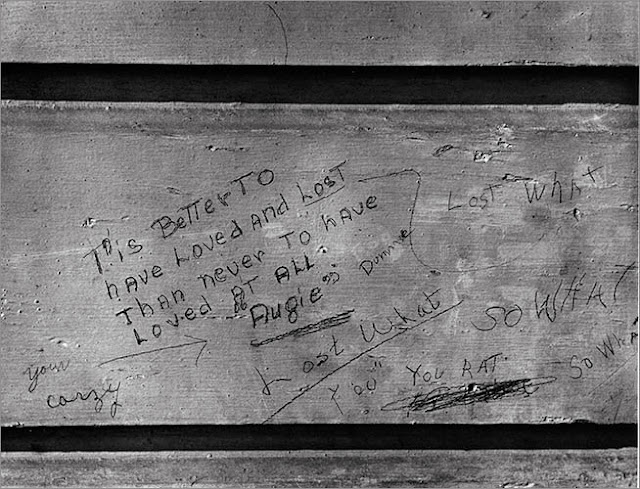 T'is BeTTer To
have Loved And LosT
Than never To have
Loved AT ALL
"Augie"
Dummie
LosT whaT
Lost What
SO WHAT
You" You RAT
So WhA
your
carzy